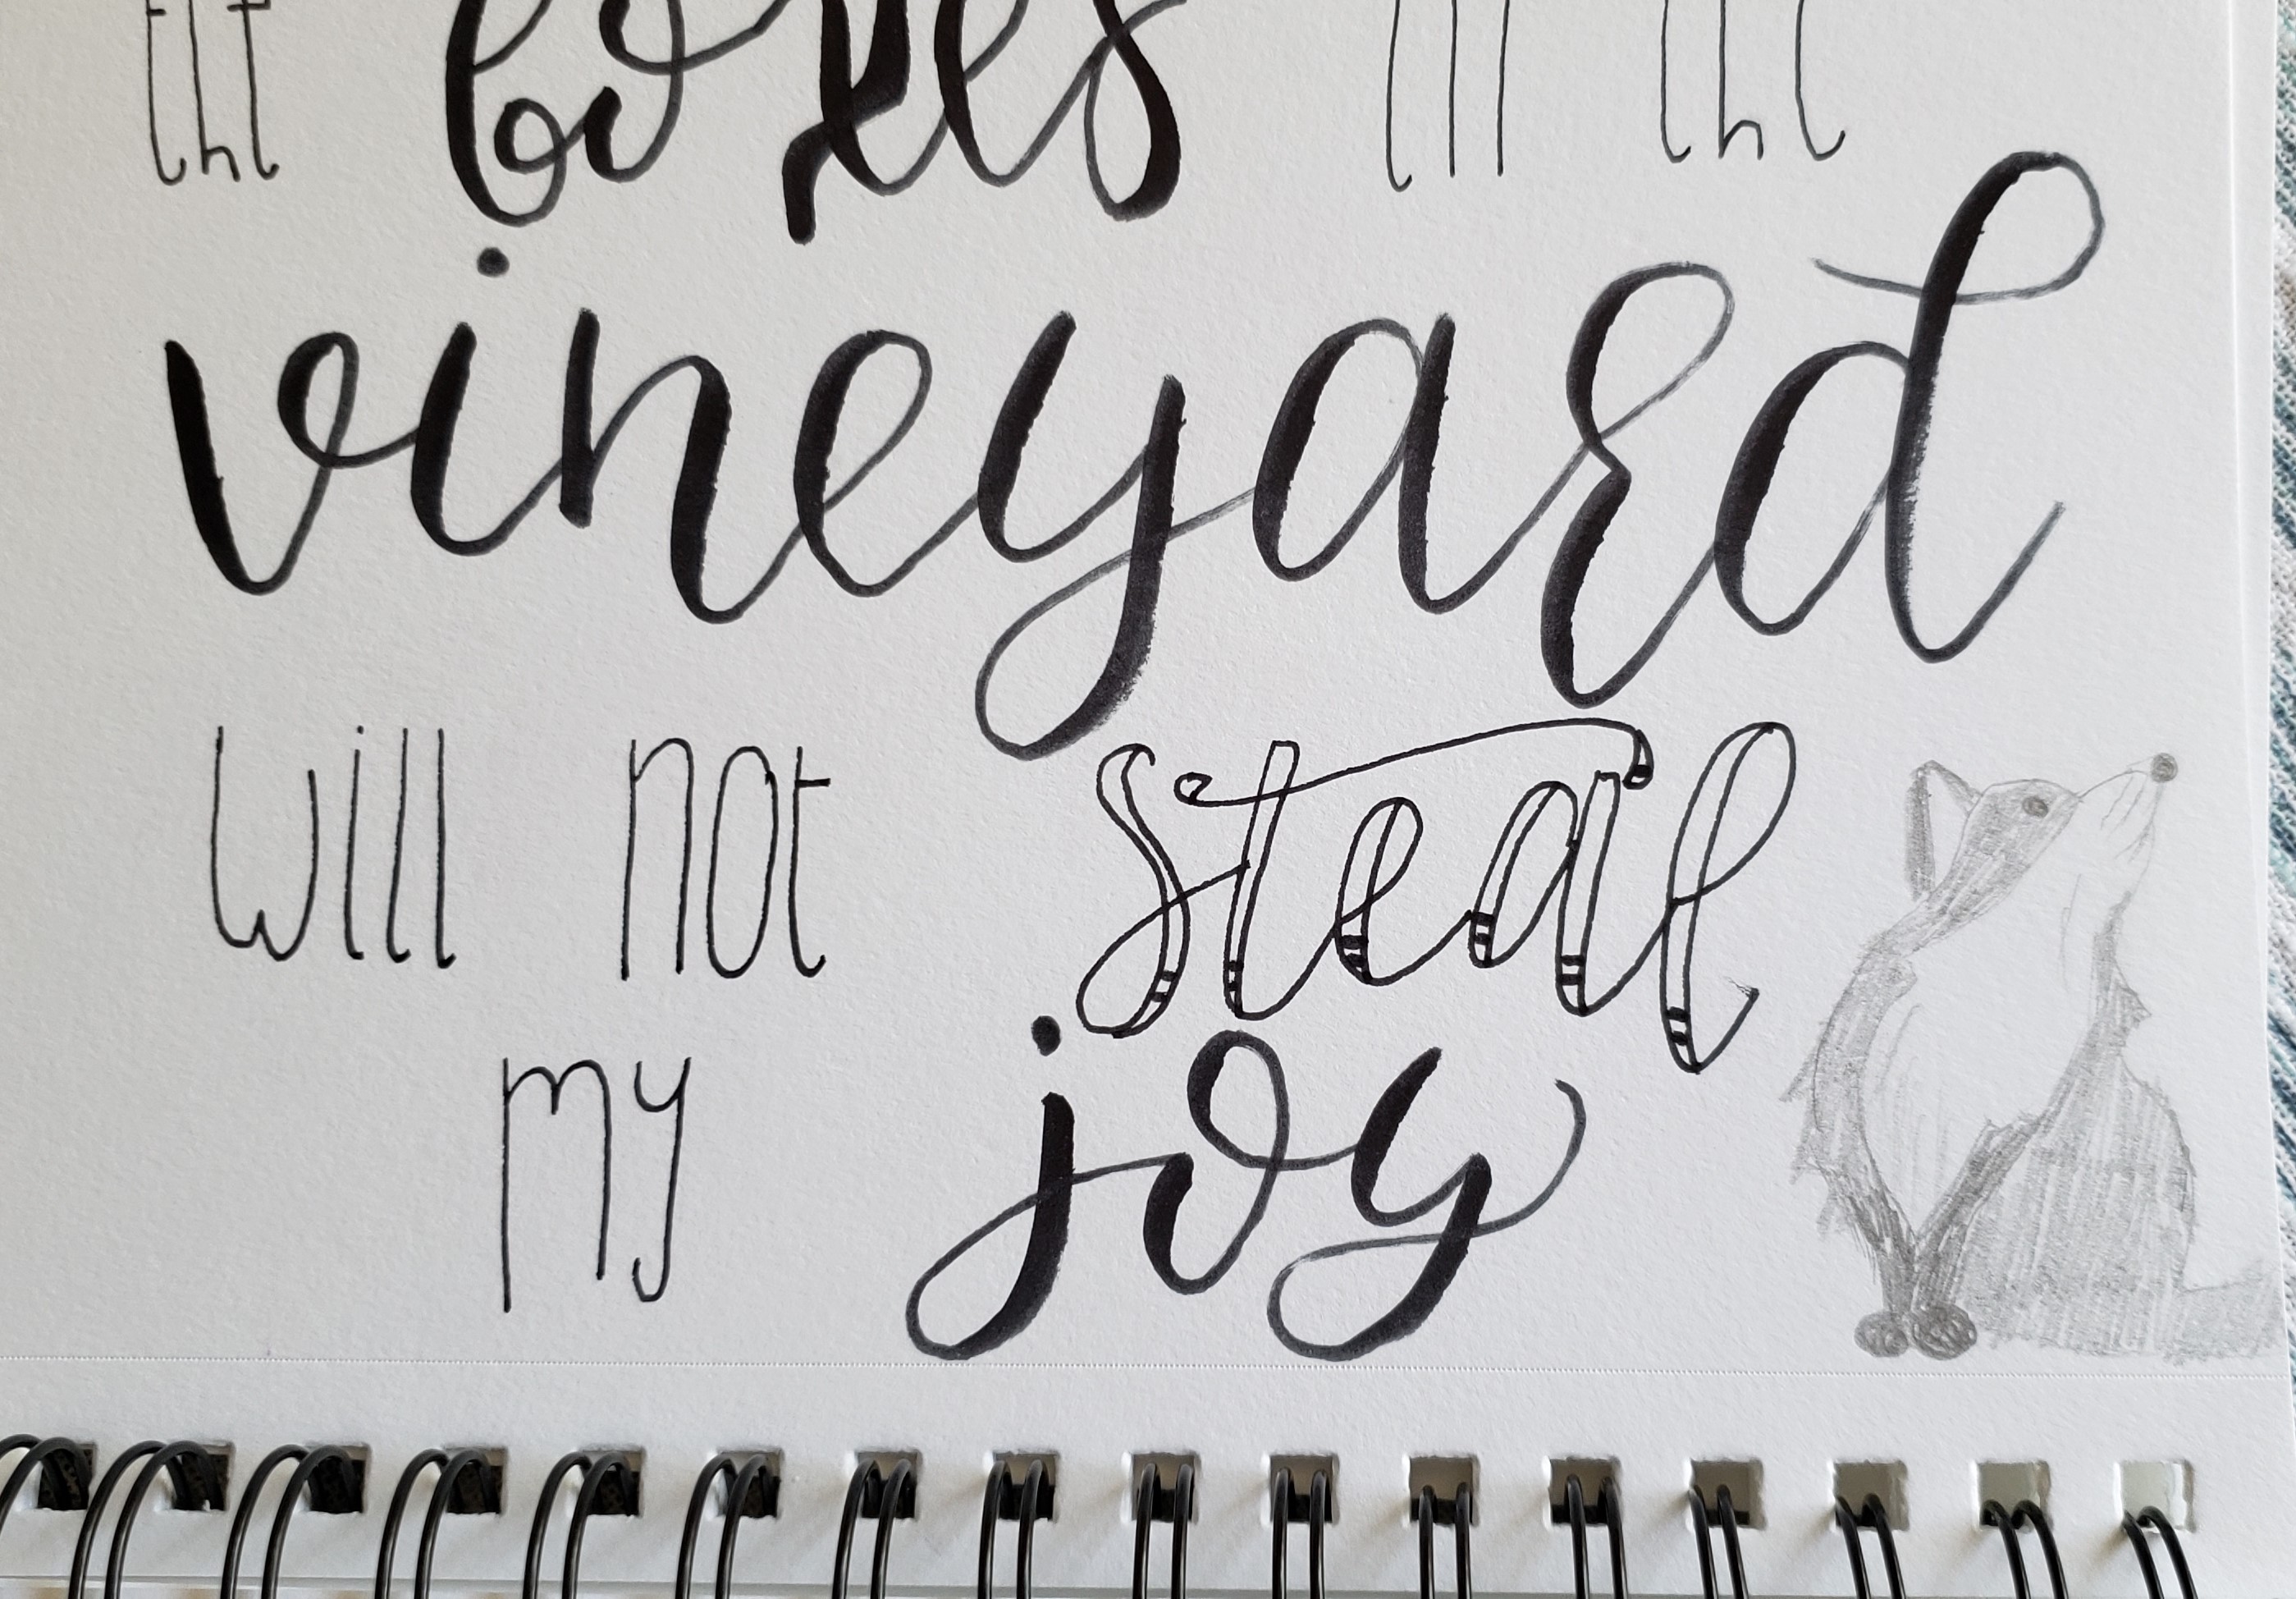 the foxes in the
vineyard
will not steal
my joy